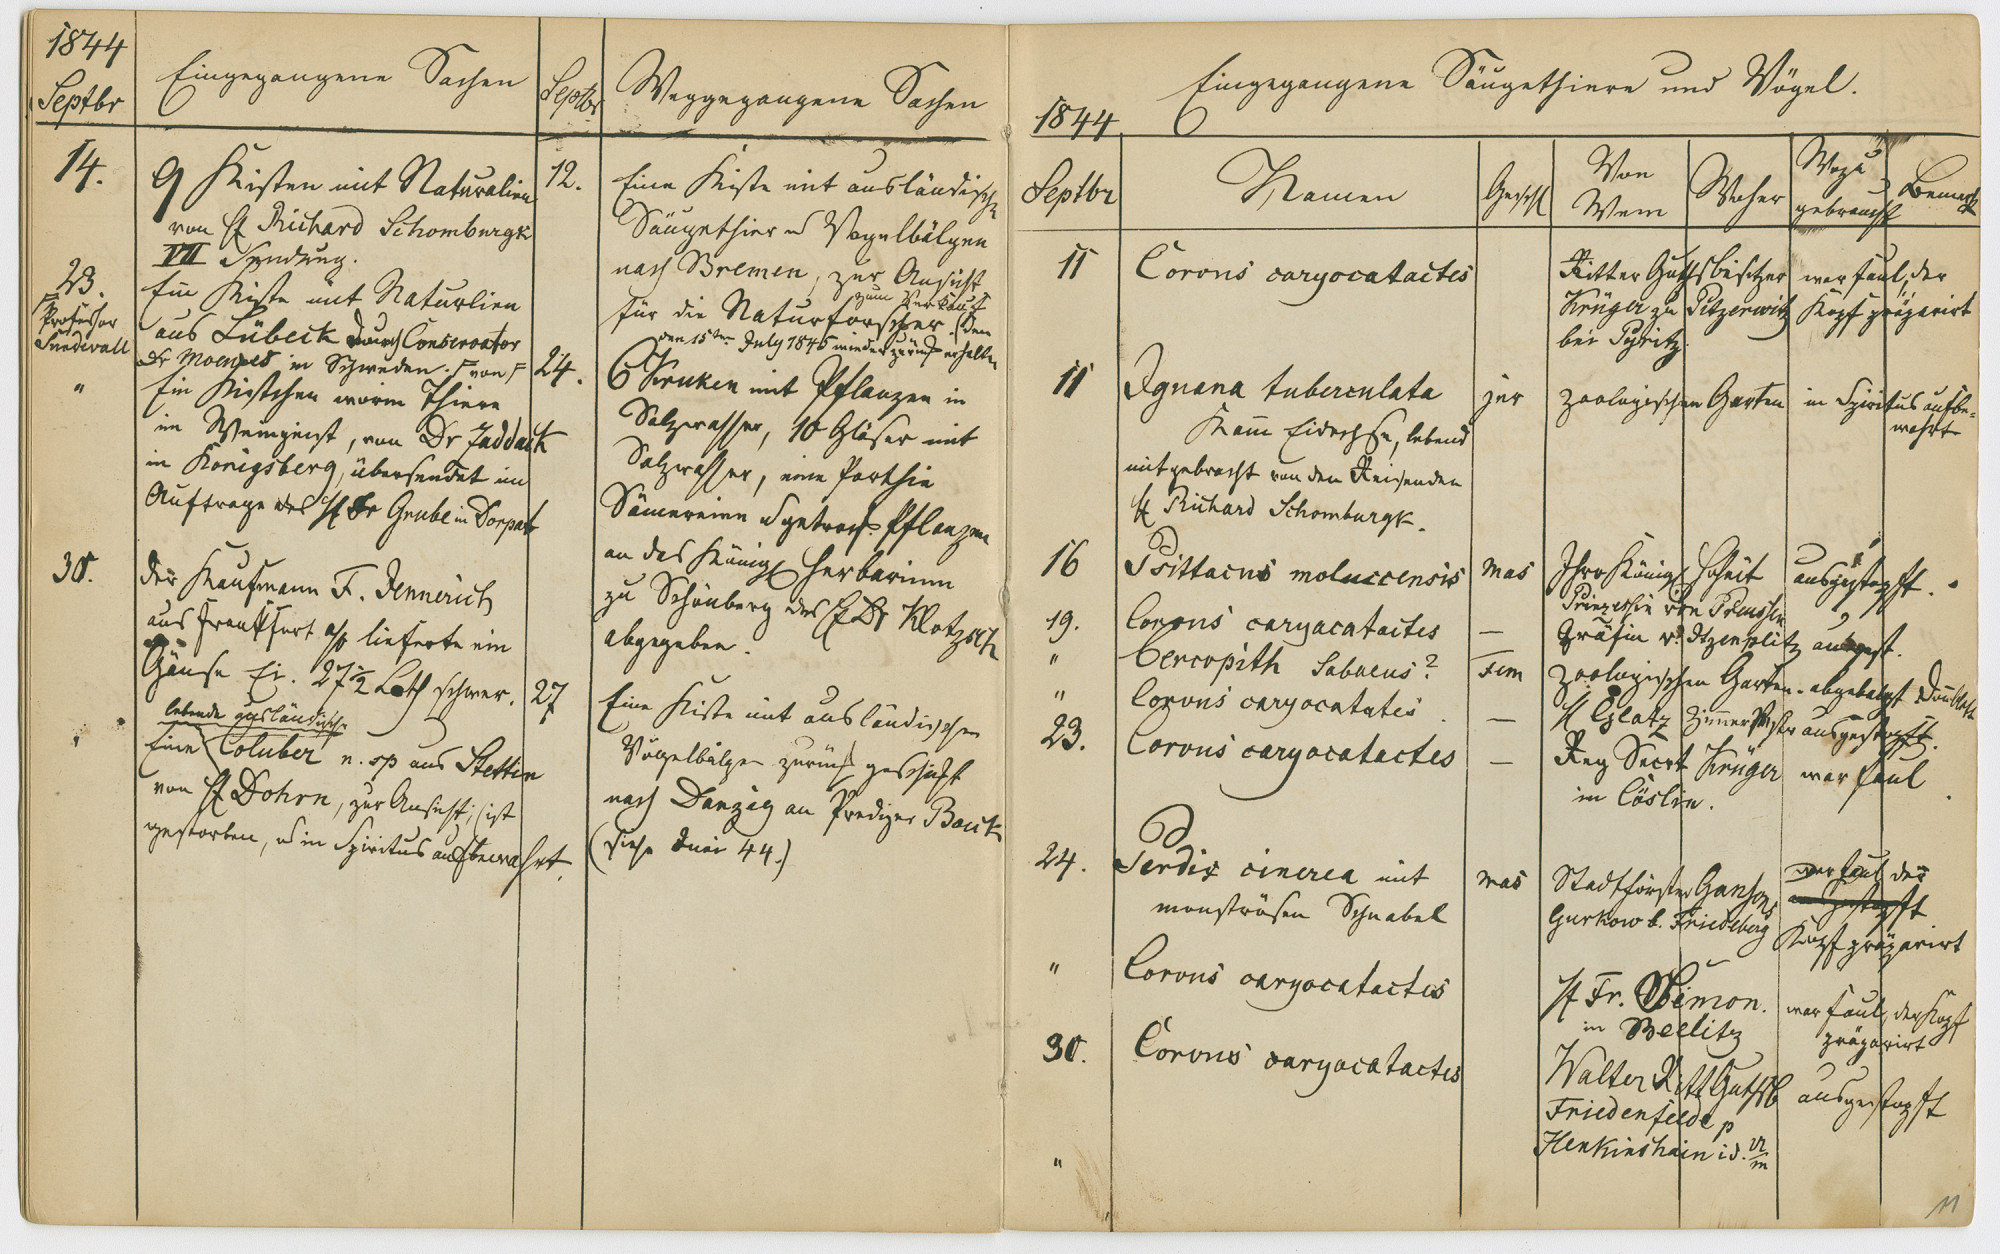 1844
Septbr
Eingegangene Sachen
14.
9 Kisten mit Naturalien
von H Richard Schomburgk
VII Sendung.
23.
Ein Kiste mit Naturlien
aus Lübeck durch Conservator
Dr in Schweden. von
Professor
Sundevall
"
Ein Kistchen worin Thiere
im Weingeist, von Dr Zaddach
in Königsberg, übersendet im
Auftrage des H Dr Grube in Dorpat
30.
der Kaufmann F. Jennerich
aus Frankfurt a/o lieferte ein
Gänse Ei. 27½ Loth schwer.
lebende ausländische
"
Eine Coluber n. sp aus Stettin
von H Dohrn, zur Ansicht, (ist
gestorben, u in Spiritus aufbewahrt.
Septbr
Weggegangene Sachen
12.
Eine Kiste mit ausländische
Säugethier u Vogelbälgen
nach Bremen, zur Ansicht
zum Verkauf
für die Naturforscher. (den
den 15ten July 1845 wieder zurück erhalten
24.
6 Kruken mit Pflanzen in
Salzwasser, 10 Gläser mit
Salzwasser, eine Parthie
Sämereien u getrock. Pflanzen
an das Königl Herbarium
zu Schönberg des H Dr Klotzsch
abgegeben.
27
Eine Kiste mit ausländischen
Vögelbälgen zurück geschickt
nach Danzig an Prediger Böck
(siehe Juni 44.)
Eingegangene Säugethiere und Vögel.
1844
Septbr
Namen
Geschl
Von
Wem
Woher
Wozu
gebraucht
Bemerk
11
Corvus caryocatactes
Ritter Guthsbesitzer
Krüger zu Pitzerwitz
bei Pyritz.
war faul, der
Kopf präparirt
11
Iguana tuberculata
jur
zoologischen Garten
in Spiritus aufbe-
wahrt
Kam Eidechse, lebend
mitgebracht von dem Reisenden
H Richard Schomburgk.
16
Psittacus moluccensis
mas
Ihro Königl Hoheit
Prinzessin von Preussen
ausgestopft.
19.
Corvus caryacatactes
—
Gräfin v. Itzenplitz
ausgest.
"
Cercopith Sabaeus?
Fem
zoologischen Garten.
abgebalgt
"
Corvus caryocatates
—
H Glatz Zimmer Mstr
ausgestopft.
23.
Corvus caryocatactes
—
Reg Secrt Krüger
in Cöslin.
war faul
24.
Perdix cinerea mit
monströsen Schnabel
mas
Stadtförster
Gurkow b. Friedeberg
war faul der
ausgestopft
Kopf präparirt
"
Corvus caryocatactes
H Fr. Simon.
in Beelitz
war faul, der Kopf
präparirt
30.
Corvus caryocatactes
Walter Ritt Guthsb
Friedenfelde p
ausgestopft
"
Henkinshain i d. U/M
11